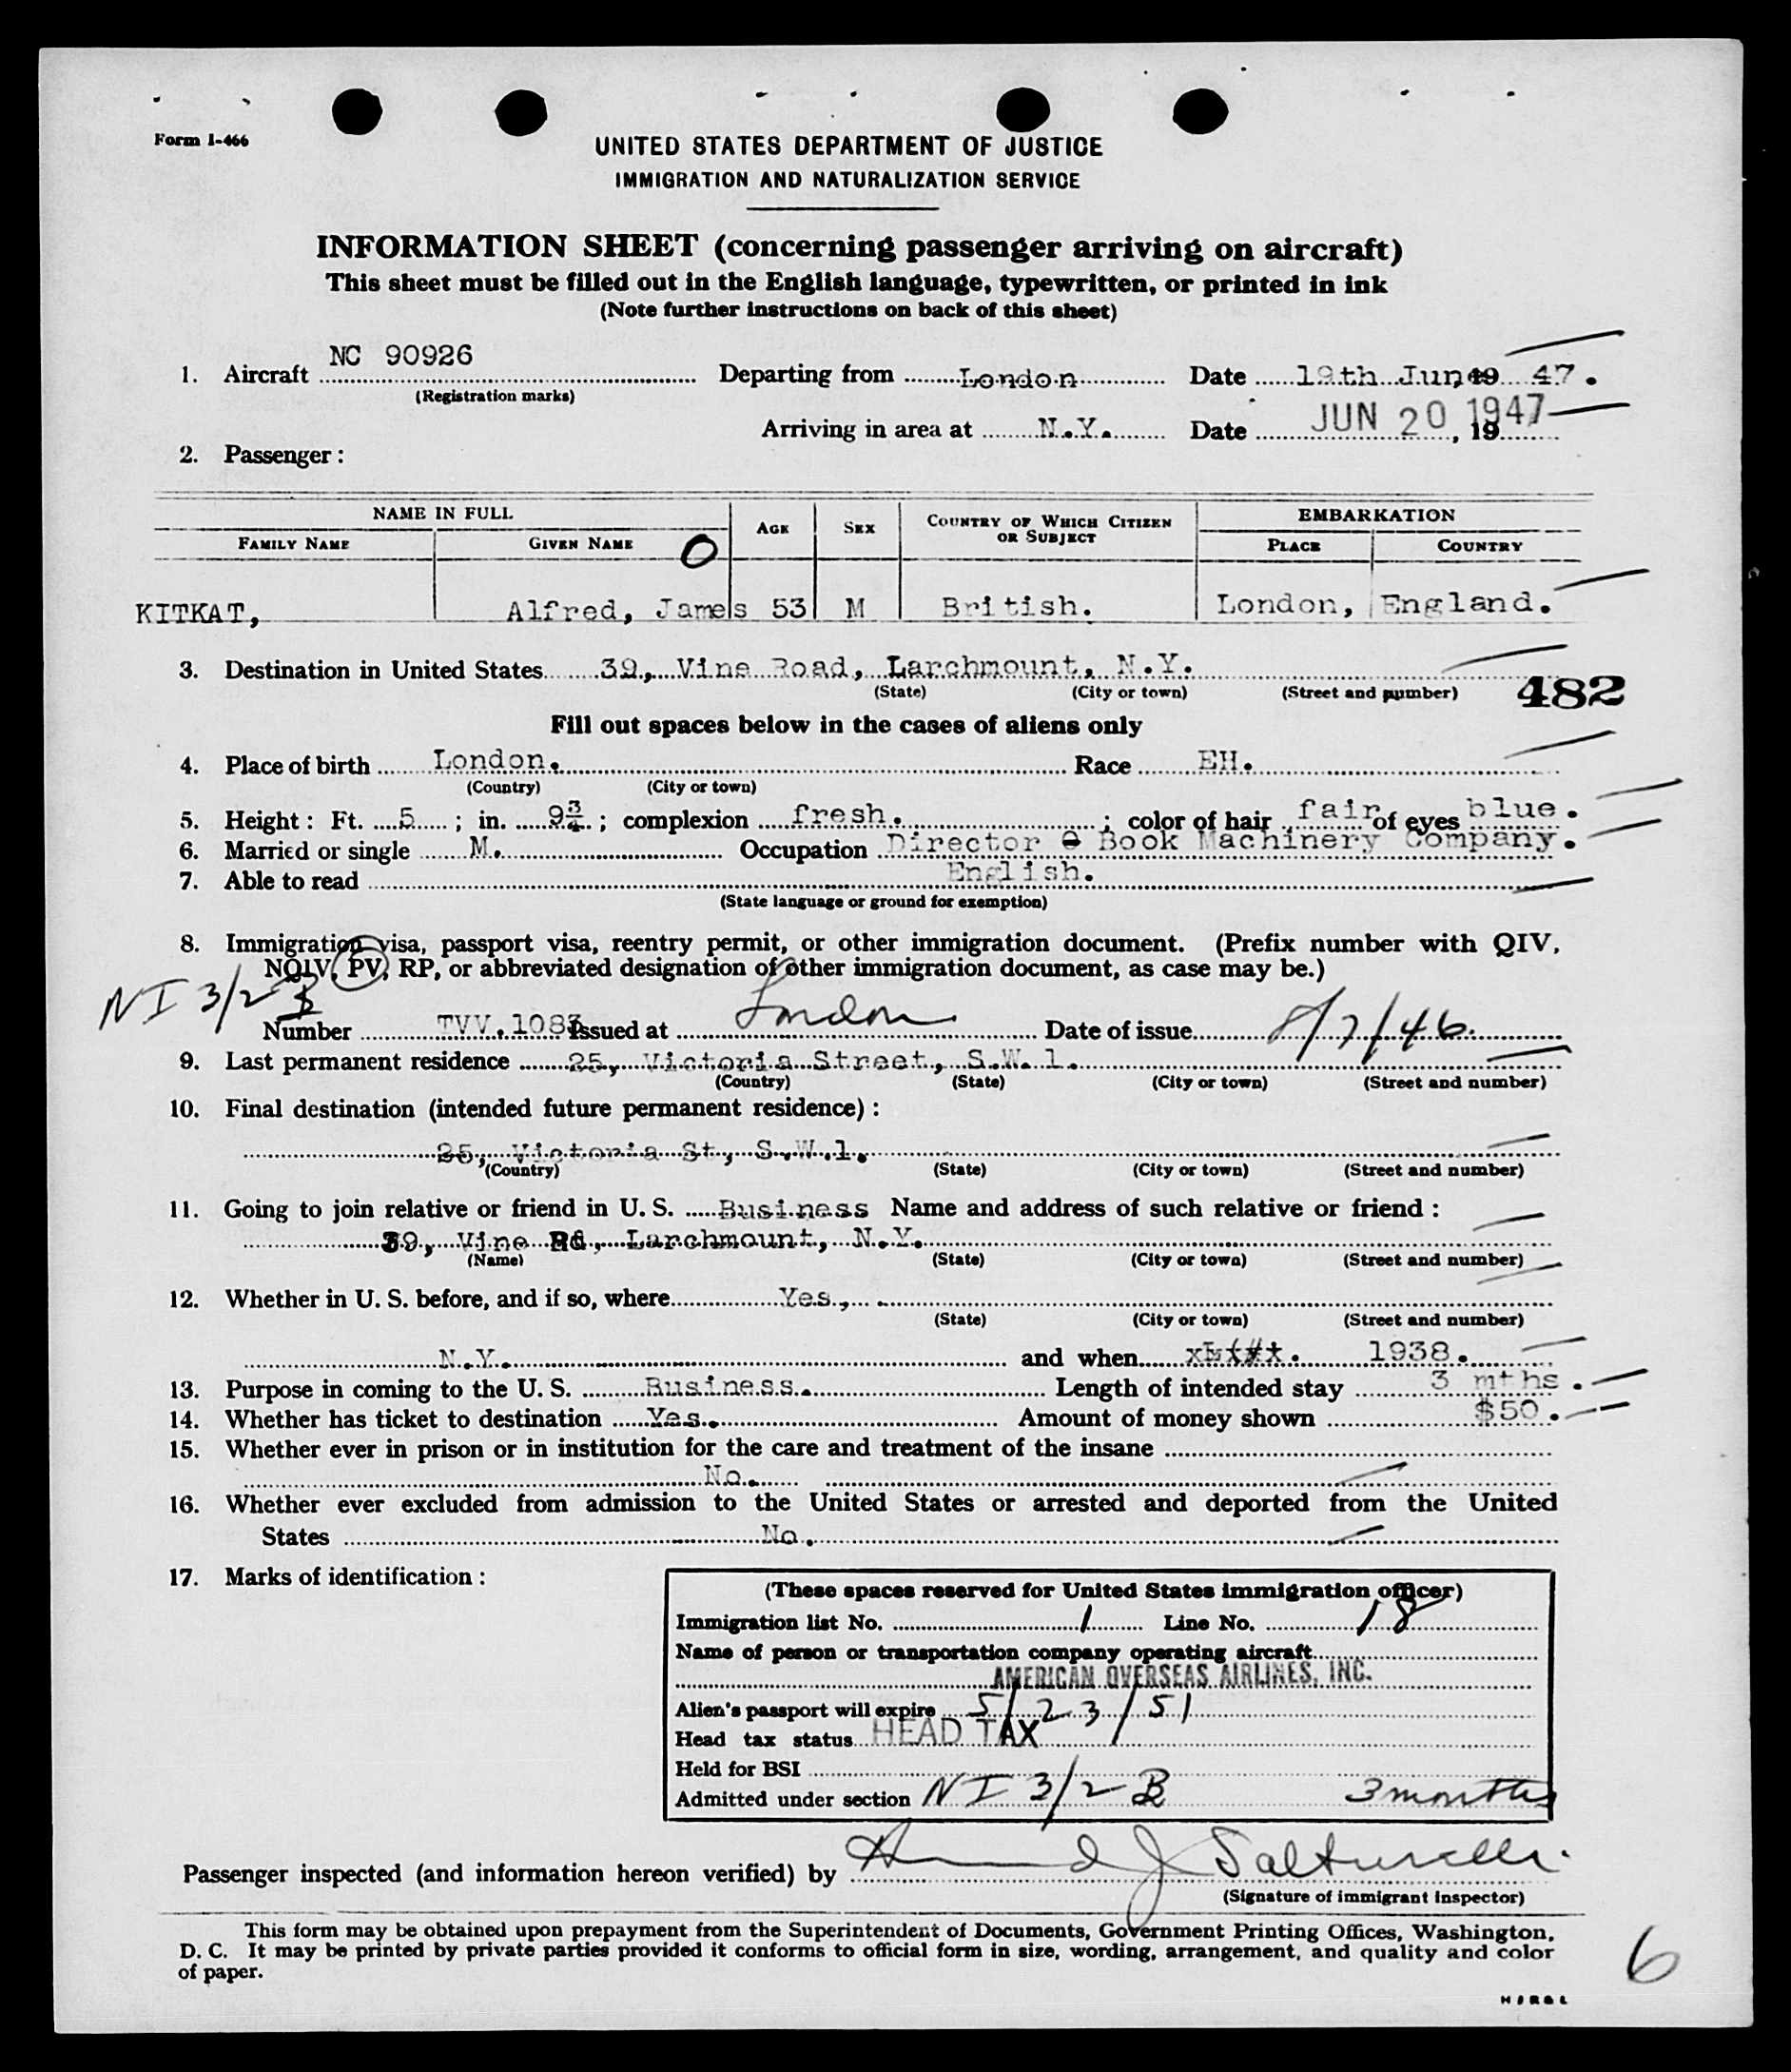 Form I-466
UNITED STATES DEPARTMENT OF JUSTICE
IMMIGRATION AND NATURALIZATION SERVICE
INFORMATION SHEET (concerning passenger arriving on aircraft)
This sheet must be filled out in the English language, typewritten, or printed in ink
(Note further instructions on back of this sheet)
1. Aircraft NC 90926 Departing from London Date 19th June 19 47.
(Registration marks)
Arriving in area at N.Y. Date JUN 20 1947, 19
2. Passenger:
NAME IN FULL AGE SEX COUNTRY OF WHICH CITIZEN OR SUBJECT EMBARKATION
FAMILY NAME GIVEN NAME O PLACE COUNTRY
KITKAT, Alfred, James 53 M British. London, England.
3. Destination in United States 39, Vine Road, Larchmount, N.Y.
(State) (City or town) (Street and number) 482
Fill out spaces below in the cases of aliens only
4. Place of birth London. Race EH.
(Country) (City or town)
5. Height: Ft. 5 ; in. 9¾ ; complexion fresh. ; color of hair fair of eyes blue.
6. Married or single M. Occupation Director Book Machinery Company.
7. Able to read English.
(State language or ground for exemption)
8. Immigration visa, passport visa, reentry permit, or other immigration document. (Prefix number with QIV,
NQIV, PV, RP, or abbreviated designation of other immigration document, as case may be.)
NI 3/2 B
Number TVV.1083 Issued at London Date of issue 8/7/46.
9. Last permanent residence 25, Victoria Street, S.W.1.
(Country) (State) (City or town) (Street and number)
10. Final destination (intended future permanent residence):
25, Victoria St, S.W.1.
(Country) (State) (City or town) (Street and number)
11. Going to join relative or friend in U. S. Business Name and address of such relative or friend:
39, Vine Rd, Larchmount, N.Y.
(Name) (State) (City or town) (Street and number)
12. Whether in U. S. before, and if so, where Yes,
(State) (City or town) (Street and number)
N.Y. and when 1938.
13. Purpose in coming to the U. S. Business. Length of intended stay 3 mths.
14. Whether has ticket to destination Yes. Amount of money shown $50.
15. Whether ever in prison or in institution for the care and treatment of the insane
No.
16. Whether ever excluded from admission to the United States or arrested and deported from the United
States No.
17. Marks of identification:
(These spaces reserved for United States immigration officer)
Immigration list No. 1 Line No. 18
Name of person or transportation company operating aircraft
AMERICAN OVERSEAS AIRLINES, INC.
Alien's passport will expire 5/23/51
Head tax status HEAD TAX
Held for BSI
Admitted under section NI 3/2 B 3 months
Passenger inspected (and information hereon verified) by
(Signature of immigrant inspector)
This form may be obtained upon prepayment from the Superintendent of Documents, Government Printing Offices, Washington,
D. C. It may be printed by private parties provided it conforms to official form in size, wording, arrangement, and quality and color
of paper.
6